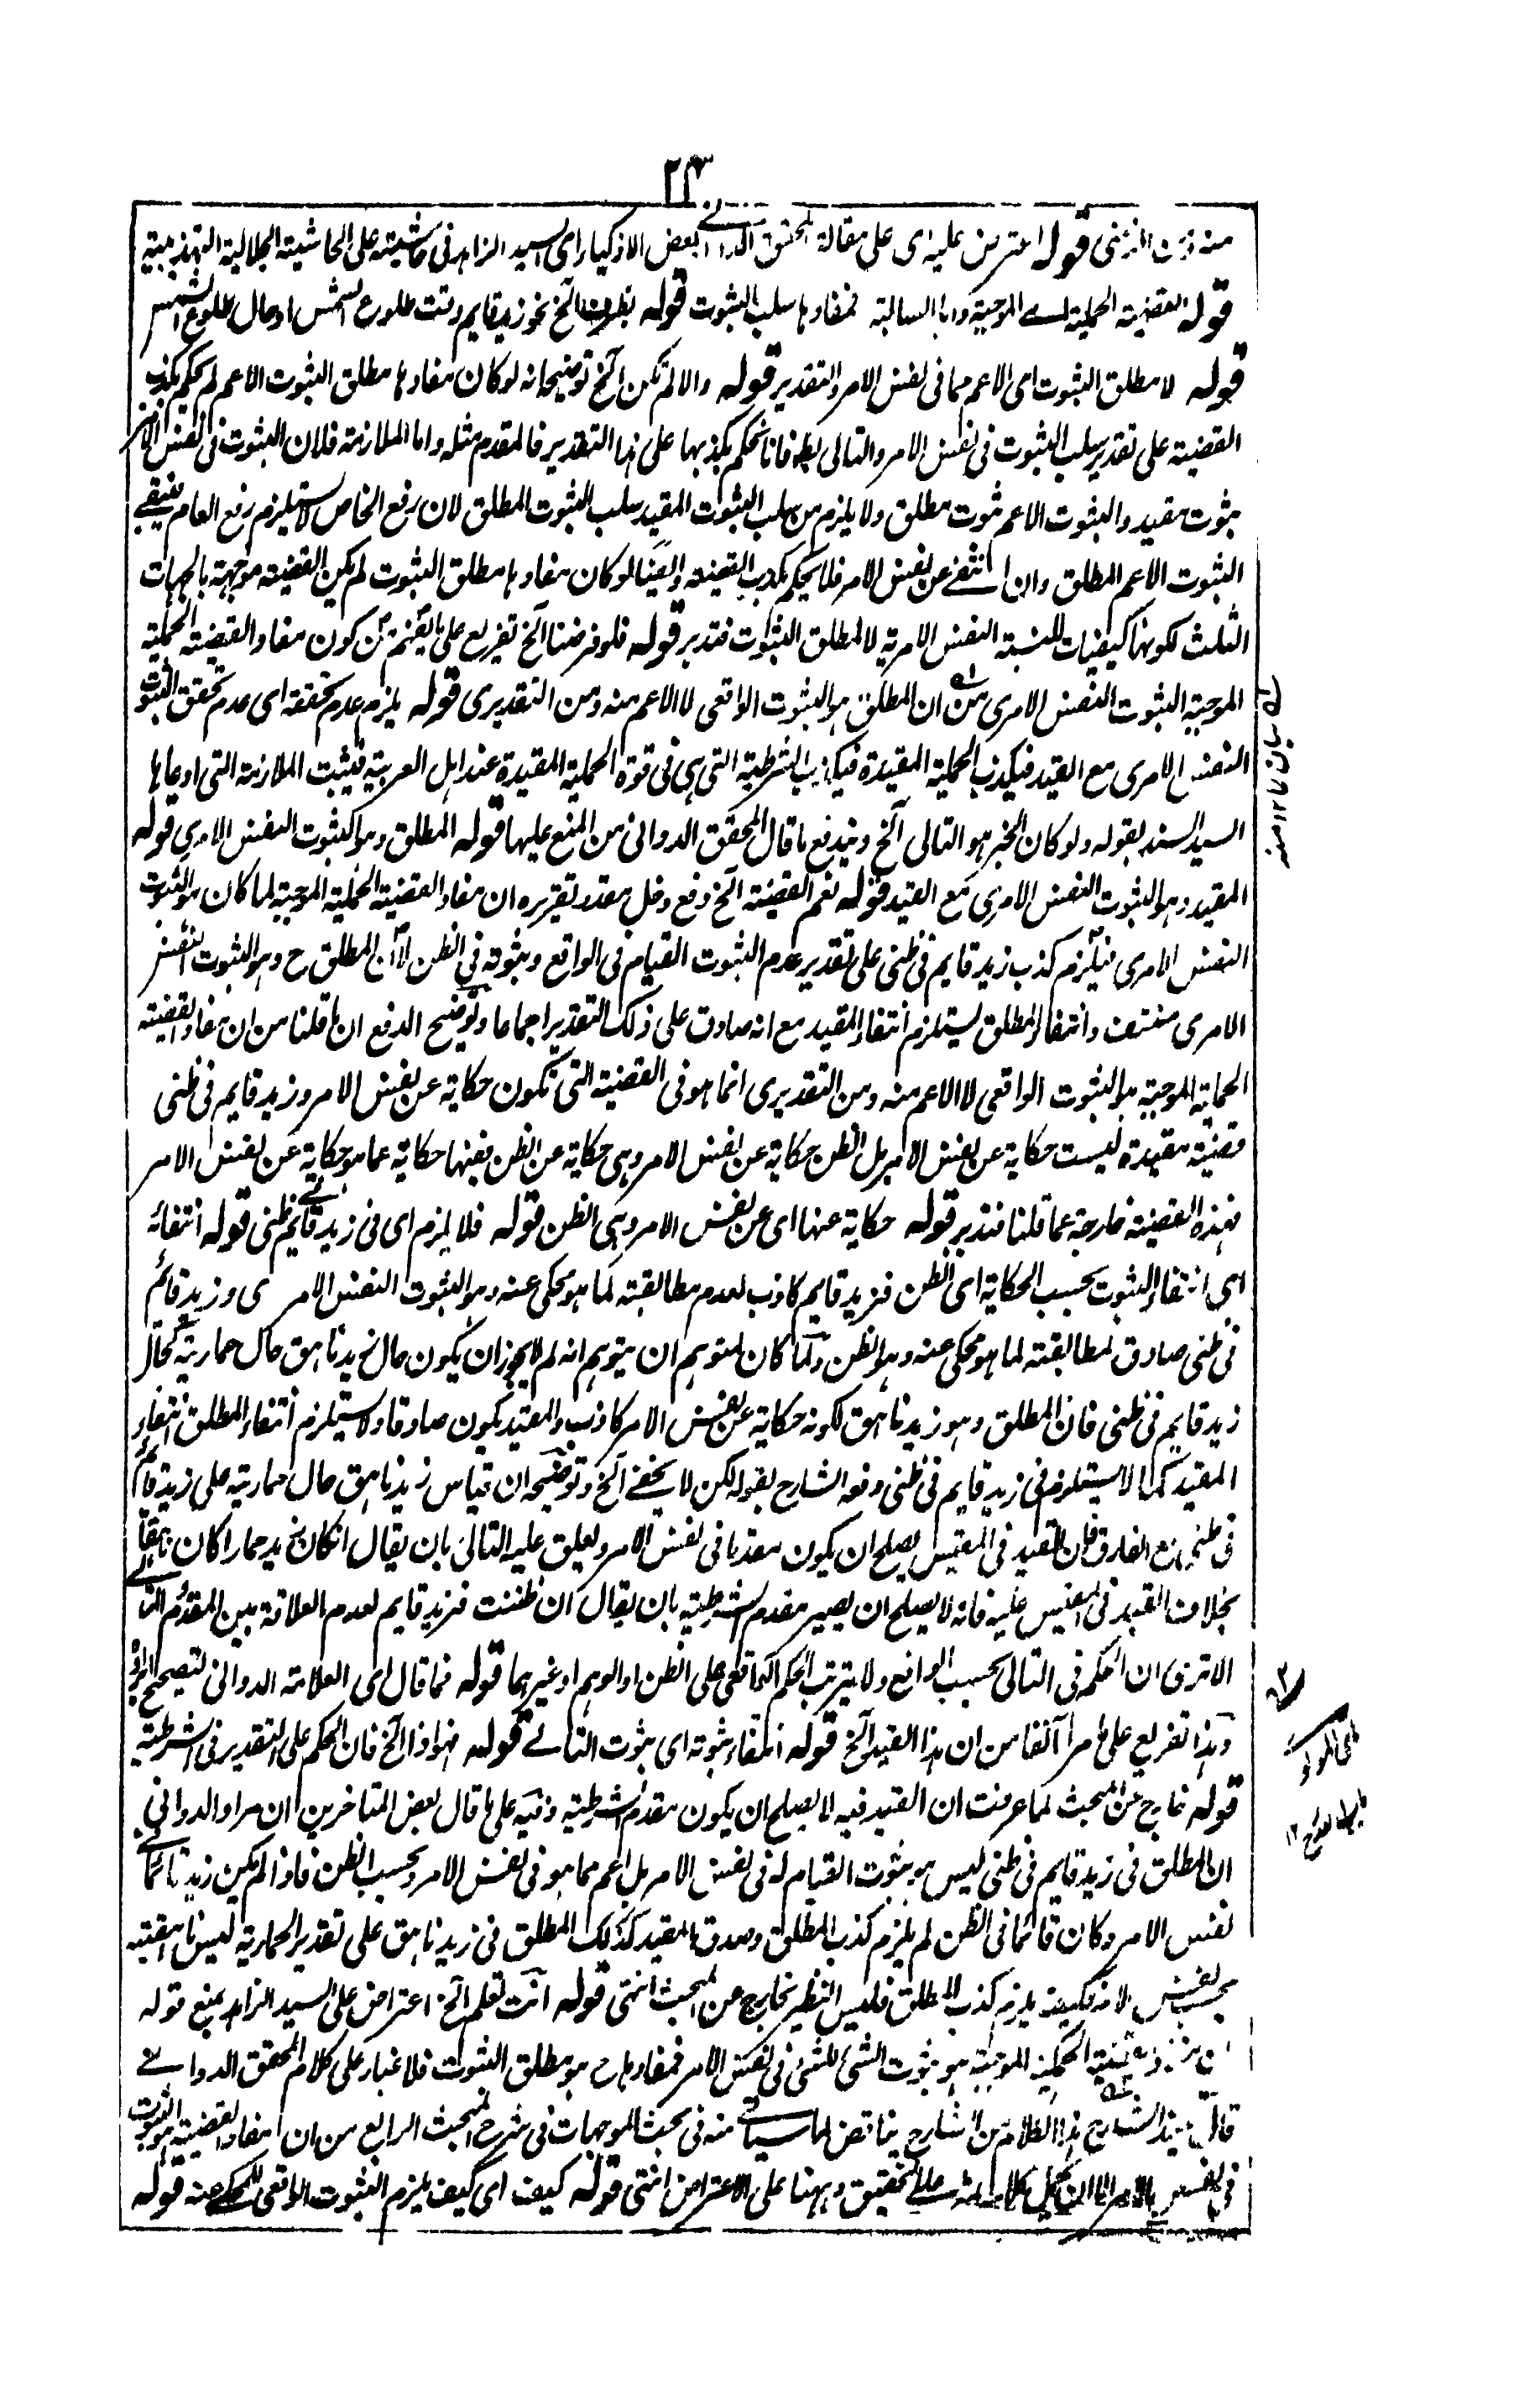 ٢٣
قوله اعترض عليه اى على مقالة المحقق الدوانے بعض الاذكياء اى السيد الزاهد فى حاشيته على الحاشية الجلالية التهذيبية
قوله القضية الحملية اے الموجبة واما السالبة فمفادها سلب الثبوت قوله بظرف الخ نحو زيد قايم وقت طلوع الشمس او حال طلوع الشمس
قوله لا مطلق الثبوت اى الاعم مما فى نفس الامر والتقدير قوله والا لم تكن الخ توضيحه انه لو كان مفادها مطلق الثبوت الاعم لم يحكم بكذب
القضية على تقدير سلب الثبوت فى نفس الامر والتالى بط فانا نحكم بكذبها على هذا التقدير فالمقدم مثله واما الملازمة فلان الثبوت فى نفس الامر
ثبوت مقيد والثبوت الاعم ثبوت مطلق ولا يلزم من سلب الثبوت المقيد سلب الثبوت المطلق لان رفع الخاص لا يستلزم رفع العام فيبقے
الثبوت الاعم المطلق وان انتفے عن نفس الامر فلا يحكم بكذب القضية وايضا لو كان مفادها مطلق الثبوت لم يكن القضية موجهة بالجهات
الثلث لكونها كيفيات للنسبة النفس الامرية لا لمطلق الثبوت فتدبر قوله فلو فرضنا الخ تفريع على ما يفهم من كون مفاد القضية الحملية
الموجبة الثبوت النفس الامرى من ان المطلق هو الثبوت الواقعى لا الاعم منه ومن التقديرى قوله يلزم عدم تحققه اى عدم تحقق الثبوت
النفس الامرى مع القيد فيكذب الحملية المقيدة فيكذب الشرطية التى هى فى قوة الحملية المقيدة عند اهل العربية فيثبت الملازمة التى ادعاها
السيد السند بقوله ولو كان الخبر هو التالى الخ ويندفع ما قال المحقق الدوانى من المنع عليها قوله المطلق وهو الثبوت النفس الامرى قوله
المقيد وهو الثبوت النفس الامرى مع القيد قوله نعم القضية الخ دفع دخل مقدر تقريره ان مفاد القضية الحملية الموجبة لما كان هو الثبوت
النفس الامرى فيلزم كذب زيد قايم فى ظنى على تقدير عدم الثبوت القيام فى الواقع وثبوته فى الظن لان المطلق ح وهو الثبوت النفس
الامرى منتف وانتفاء المطلق يستلزم انتفاء المقيد مع انه صادق على ذلك التقدير اجماعا وتوضيح الدفع ان ما قلنا من ان مفاد القضية
الحملية الموجبة هو الثبوت الواقعى لا الاعم منه ومن التقديرى انما هو فى القضية التى تكون حكاية عن نفس الامر وزيد قايم فى ظنى
قضية مقيدة ليست حكاية عن نفس الامر بل الظن حكاية عن نفس الامر وهى حكاية عن الظن ففيها حكاية عما هو حكاية عن نفس الامر
فهذه القضية خارجة عما قلنا فتدبر قوله حكاية عنها اى عن نفس الامر وهى الظن قوله فلا يلزم اى فى زيد قايم فے ظنى قوله انتفائه
اى انتفاء الثبوت بحسب الحكاية اى الظن فزيد قايم كاذب لعدم مطابقته لما هو محكى عنه وهو الثبوت النفس الامر ى وزيد قائم
فى ظنى صادق لمطابقته لما هو محكى عنه وهو الظن ولما كان لمتوهم ان يتوهم انه لم لا يجوز ان يكون حال زيد ناهق حال حماريته كحال
زيد قايم فى ظنى فان المطلق وهو زيد ناهق لكونه حكاية عن نفس الامر كاذب والمقيد يكون صادقا ولا يستلزم انتفاء المطلق انتفاء
المقيد كما لا يستلزم فى زيد قايم فى ظنى دفعه الشارح بقوله لكن لا يخفے الخ وتوضيحه ان قياس زيد ناهق حال حماريته على زيد قائم
فى ظنى مع الفارق فان القيد فى المقيس يصلح ان يكون مقدما فى نفس الامر ويعلق عليه التالى بان يقال ان كان زيد حمارا كان ناهقا
بخلاف القيد فى المقيس عليه فانه لا يصلح ان يصير مقدم الشرطية بان يقال ان ظننت فزيد قايم لعدم العلاقة بين المقدم والتالے
الا ترى ان الحكم فى التالى بحسب الواقع ولا يترتب الحكم الواقعى على الظن او الوهم او غيرهما قوله فما قال اى العلامة الدوانى لتصحيح المراد
وهذا تفريع على ما مر آنفا من ان هذا القيد الخ قوله انتفاء ثبوته اى ثبوت التالے قوله فهو اذا الخ فان الحكم على التقدير فى الشرطية
قوله خارج عن المبحث لما عرفت ان القيد فيه لا يصلح ان يكون مقدم الشرطية وفيه على ما قال بعض المتاخرين ان مراد الدوانى
ان المطلق فى زيد قايم فى ظنى ليس هو ثبوت القيام له فى نفس الامر بل اعم مما هو فى نفس الامر وبحسب الظن فاذا لم يكن زيد قائما فے
نفس الامر وكان قائما فى الظن لم يلزم كذب المطلق وصدق المقيد كذلك المطلق فى زيد ناهق على تقدير الحمارية ليس ناهقيته
بحسب نفس الامر فكيف يلزم كذب المطلق فليس النظير بخارج عن المبحث انتهى قوله انت تعلم الخ اعتراض على السيد الزاهد بمنع قوله
القضية الحملية الموجبة هو ثبوت الشئ للشئ فى نفس الامر فمفادها ح هو مطلق الثبوت فلا غبار على كلام المحقق الدوانے
قال الشارح هذا الكلام من الشارح يناقض لما سياتے منه فى بحث الموجهات فى شرح المبحث الرابع من ان مفاد القضية هو الثبوت
فى نفس الامر التحقيق وههنا على الاعتراض انتهى قوله كيف اى كيف يلزم الثبوت الواقعى للمحكے عنه قوله